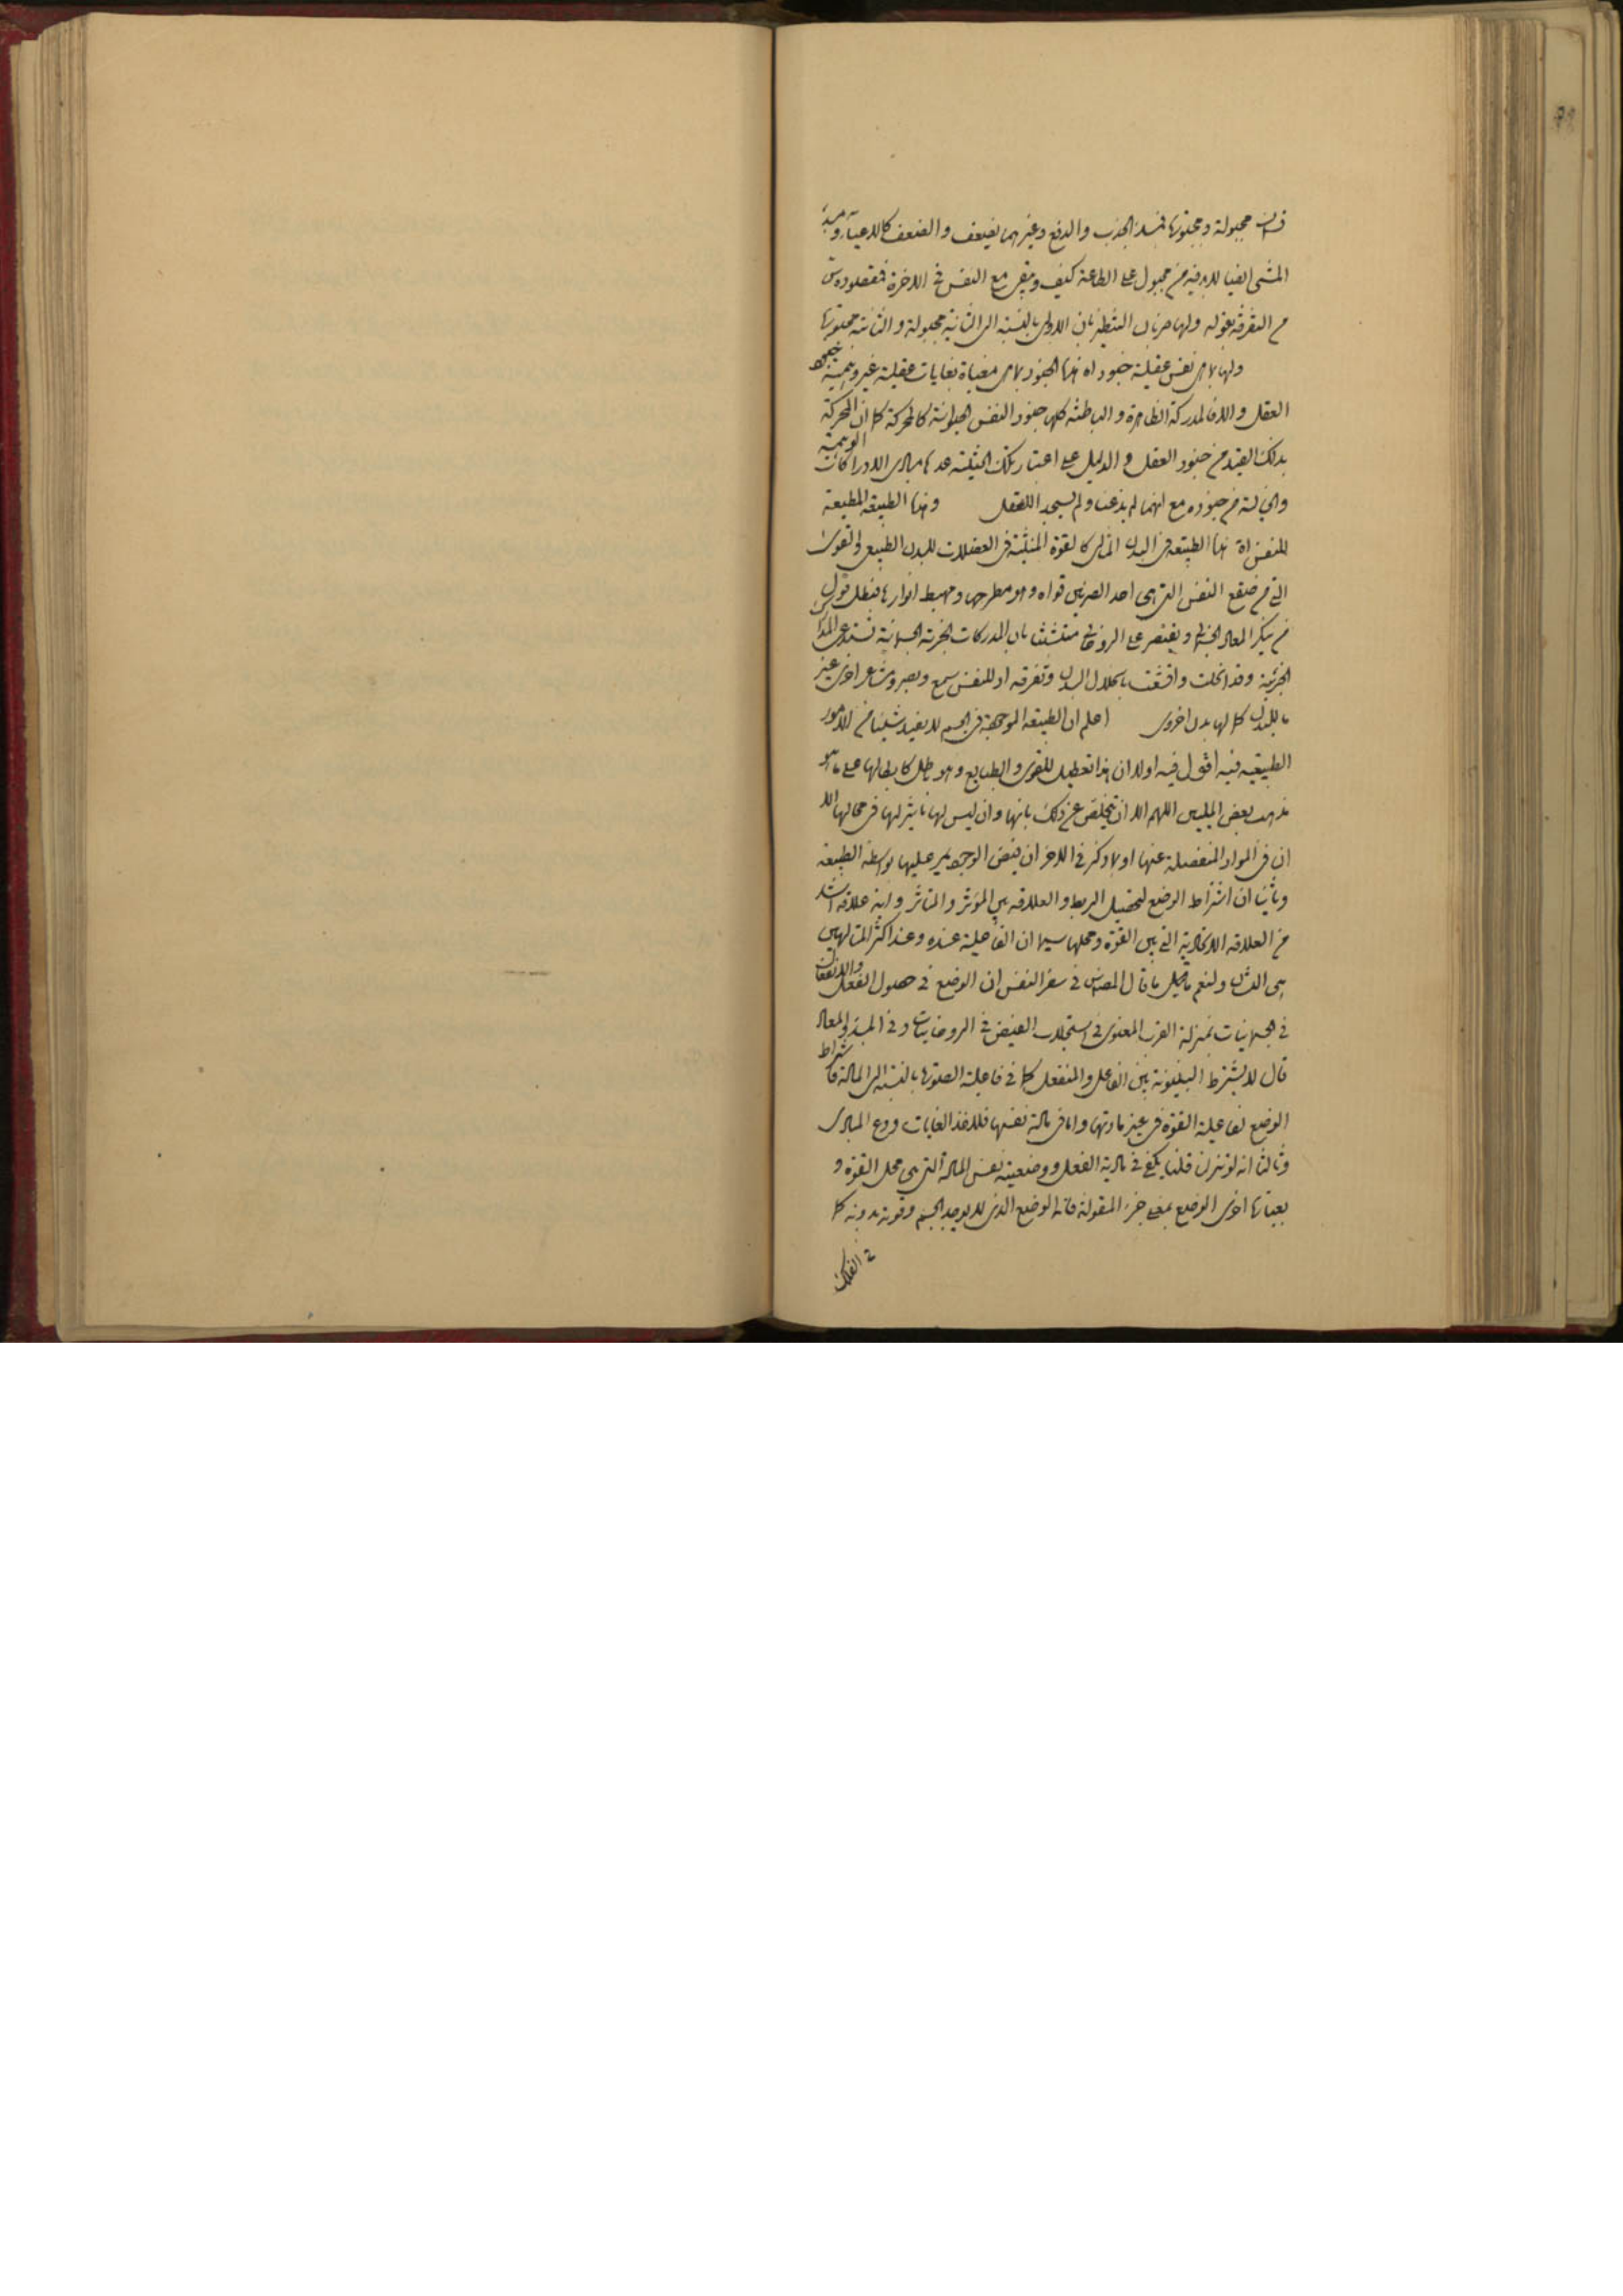 مجبولة و مجبولتها الجذب والدفع وغيرهما يضعف والضعف كالاعياء
المشى ايضا لابد فيه من مجبول على الطاعة كيف ويبقى مع النفس فى الاخرة فمقصوده س
من التفرقة بقوله ولها ضربان التنظير بان الاولى بالنسبة الى الثانية مجبولة والثانية مجبولتها
ولها بما هى نفس عقلية جنود اه هذا الجنود بما هى مغياة بغايات عقلية غير وهمية جنود
العقل والا فالمدركة الظاهرة والباطنة كلها جنود النفس الحيوانية كالمحركة كما ان المحركة
بذلك القيد من جنود العقل والدليل على اعتبار تلك الحيثية عد مبادى الادراكات الوهمية
والخيالية من جنوده مع انهما لم يذعنا ولم يسجدا للعقل وهذا الطبيعة المطيعة
للنفس اه هذا الطبيعة فى البدن المثالى كالقوة المنبثة فى العضلات للبدن الطبيعى والقوى
التى من صقع النفس التى هى احد الضربين قواه وهو مطرحها ومهبط انوارها فبطل قول
من ينكر المعاد الجسمانى ويقتصر على الروحانى متشبثا بان المدركات الجزئية الجسمانية تستدعى المدارك
الجزئية وقد انحلت وافتقت بانحلال البدن وتفرقه اذ للنفس سمع وبصر ومشاعر اخرى غير
ما للبدن كما لها بدن اخروى اعلم ان الطبيعة الموجودة فى الجسم لا يفيد شيئا من الامور
الطبيعية فيه اقول فيه اولا ان هذا تعطيل للقوى والطبايع وهو باطل كابطالها على ما هو
مذهب بعض المليين اللهم الا ان يتخلص عن ذلك بانها وان ليس لها تاثير لها فى محالها الا
ان فى المواد المنفصلة عنها او بما ذكر فى الاخر ان فيض الوجود يمر عليها بواسطة الطبيعة
وثانيا ان اشتراط الوضع لتحصيل الربط والعلاقة بين المؤثر والمتاثر واية علاقة اشد
من العلاقة الاتحادية التى بين القوة ومحلها سيما ان الفاعلية عنده وعند اكثر المتالهين
هى التشان ولنعم ما قيل ما قال المصنف فى سفر النفس ان الوضع فى حصول الفعل والانفعال
فى الجسمانيات بمنزلة القرب المعنوى فى استجلاب الفيض فى الروحانيات وفى المبدأ والمعاد
قال لا يشترط البينونة بين الفاعل والمنفعل كما فى فاعلية الصورة بالنسبة الى المادة فاشتراط
الوضع لفاعلية القوة فى غير مادتها واما فى مادة نفسها فلا فخذ الغايات ودع المبادى
وثالثا انه لو تنزلنا قلنا يكفى فى مادية الفعل ووضعيته نفس المادة التى هى محل القوة و
بعبارة اخرى الوضع بمعنى جزء المقولة فانه الوضع الذى لا يوجد الجسم وقوته بدونه كما
فى الفلك